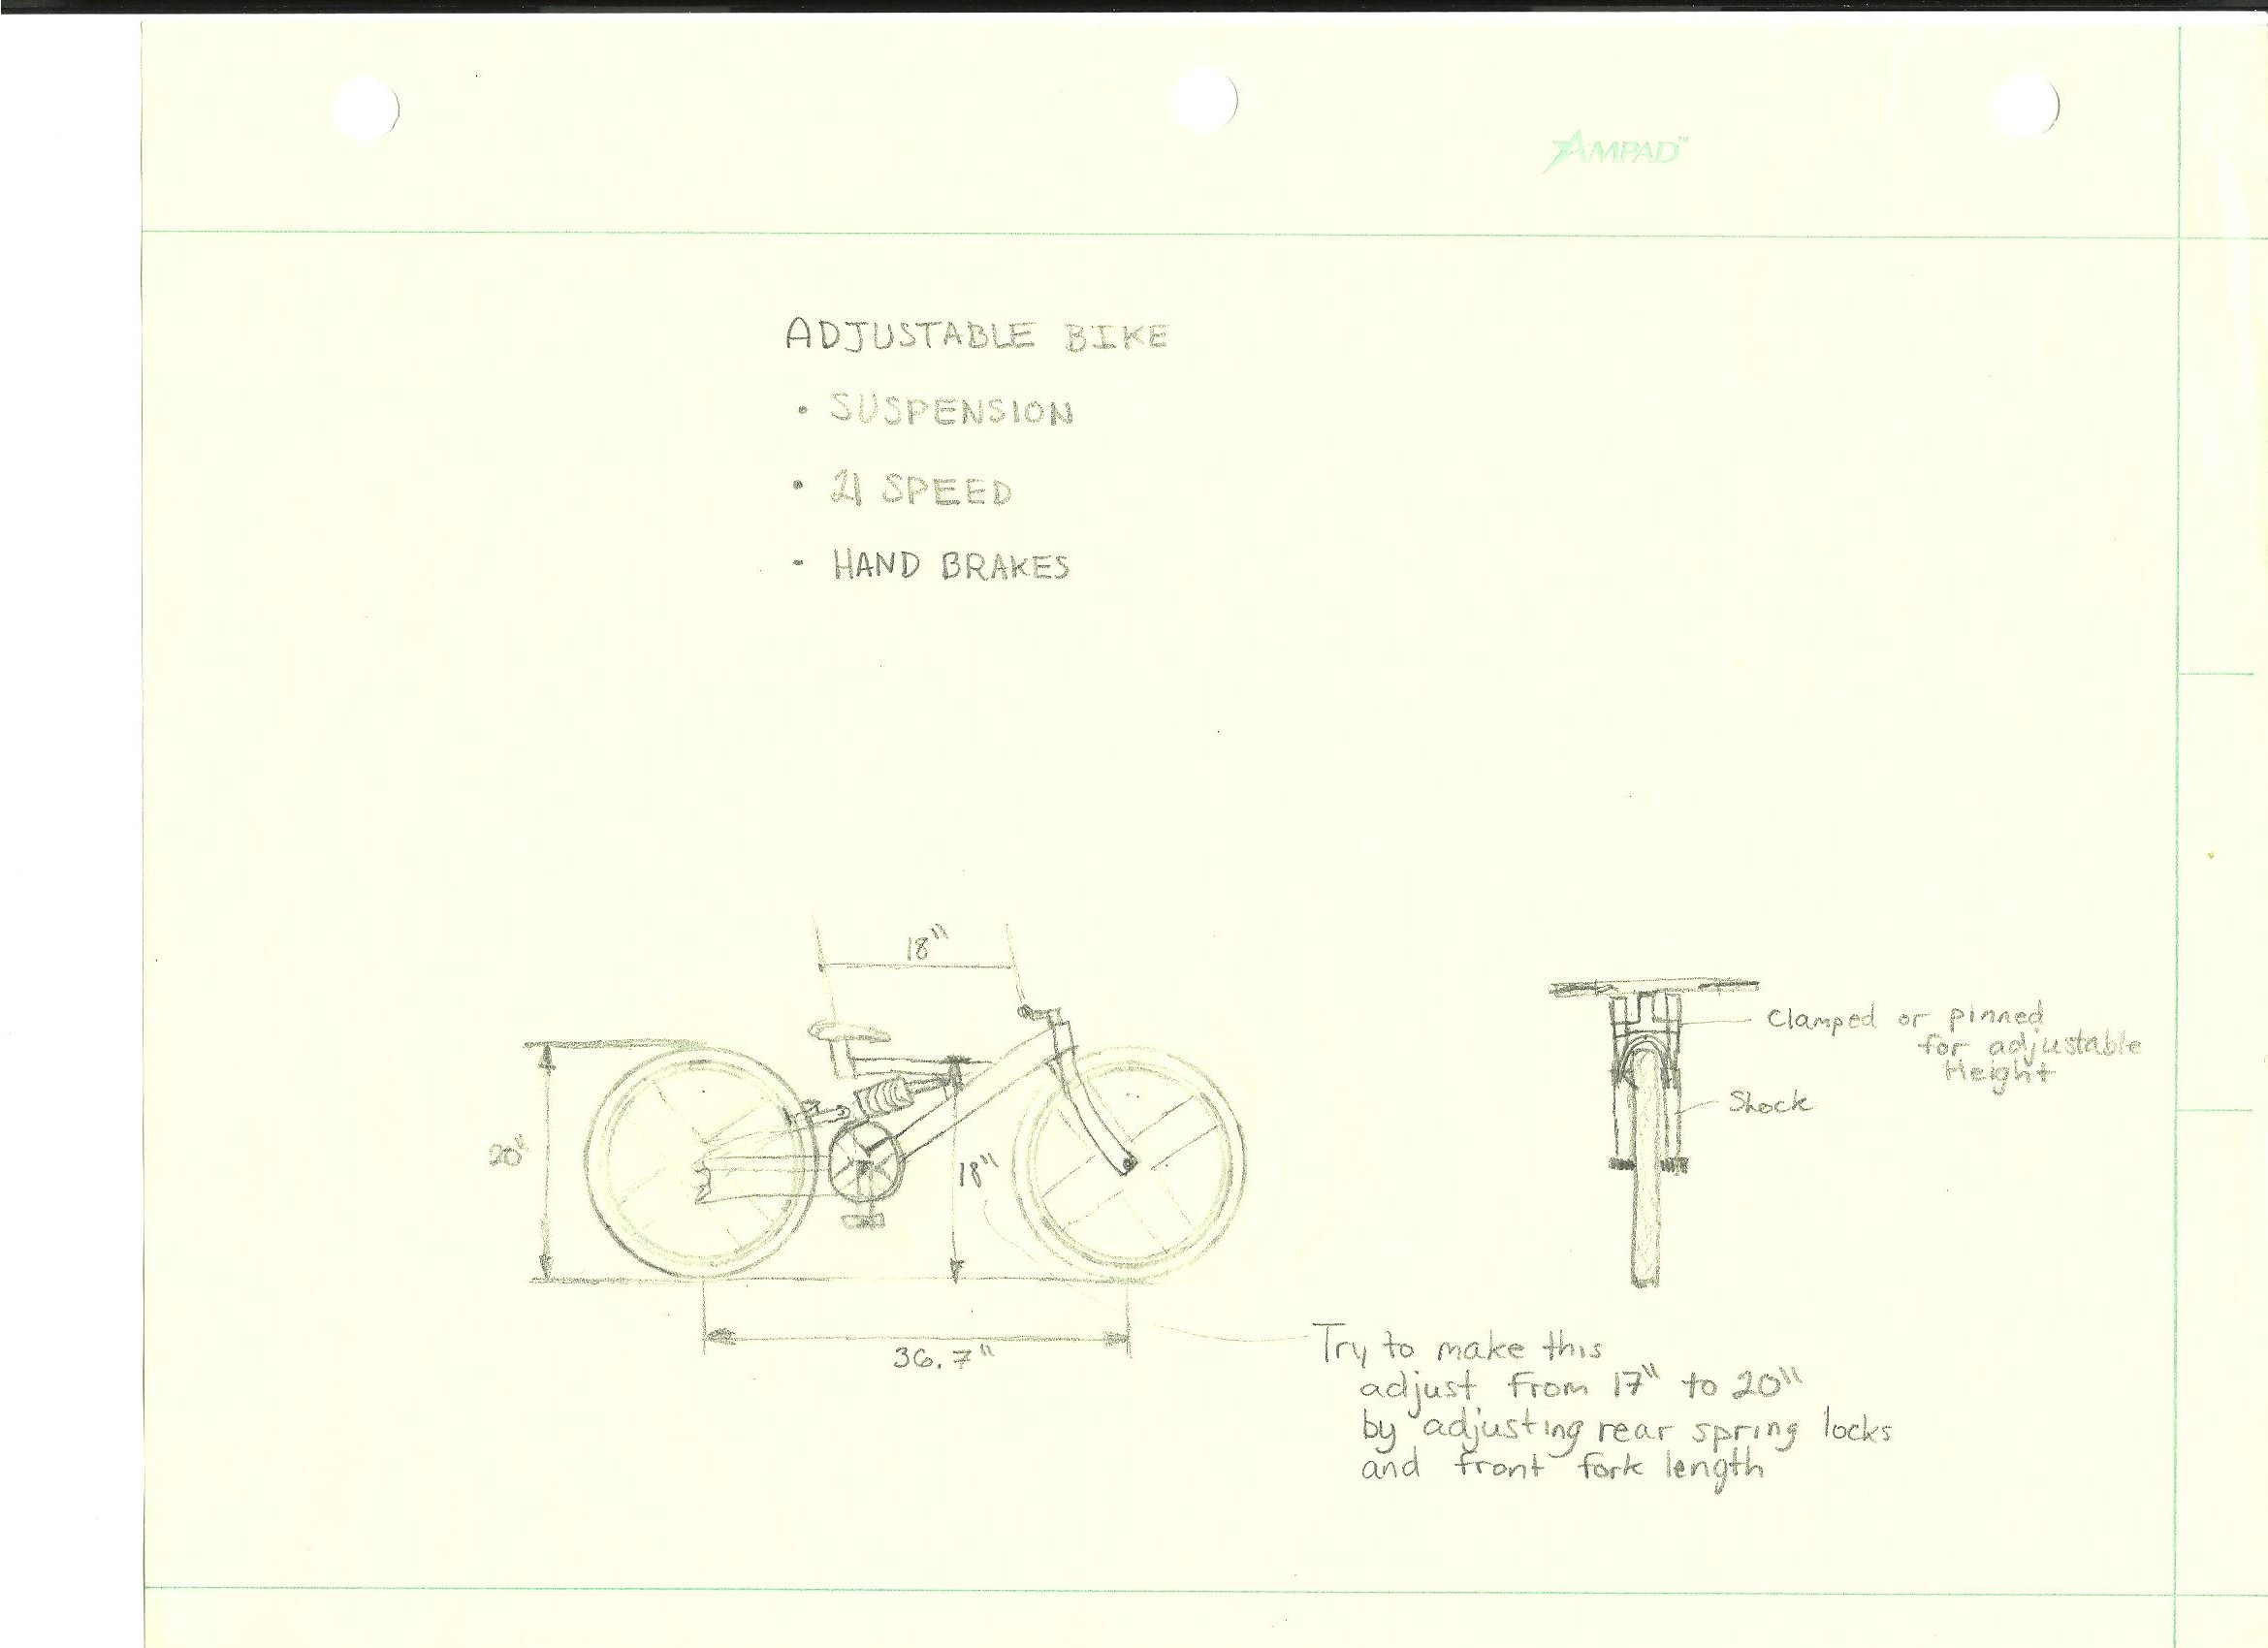 AMPAD™
ADJUSTABLE BIKE
• SUSPENSION
• 21 SPEED
• HAND BRAKES
18"
20"
18"
36.7"
Clamped or pinned
for adjustable
Height
Shock
Try to make this
adjust from 17" to 20"
by adjusting rear spring locks
and front fork length